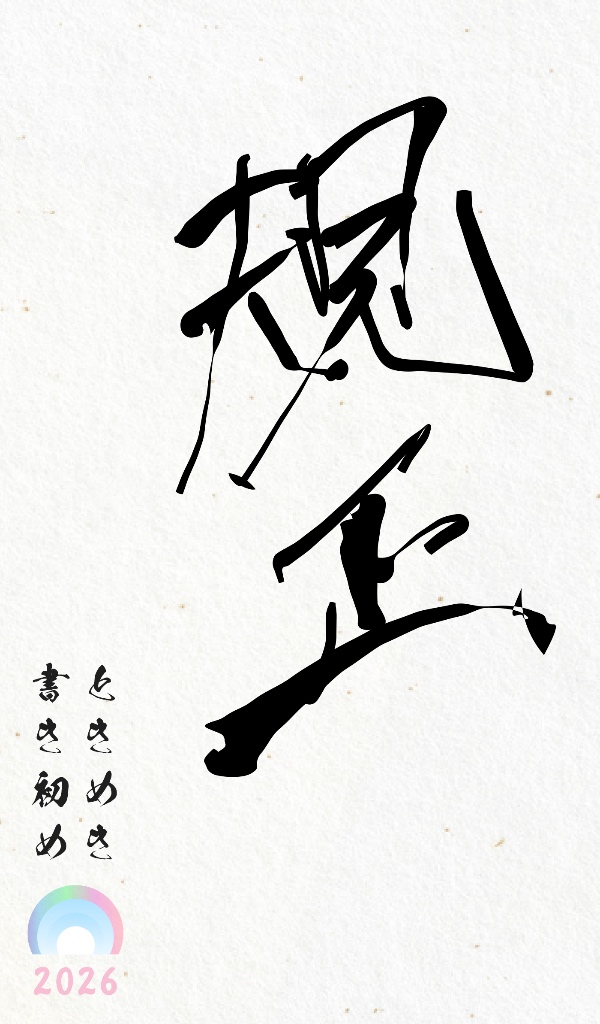 規正
ときめき
書き初め
2026